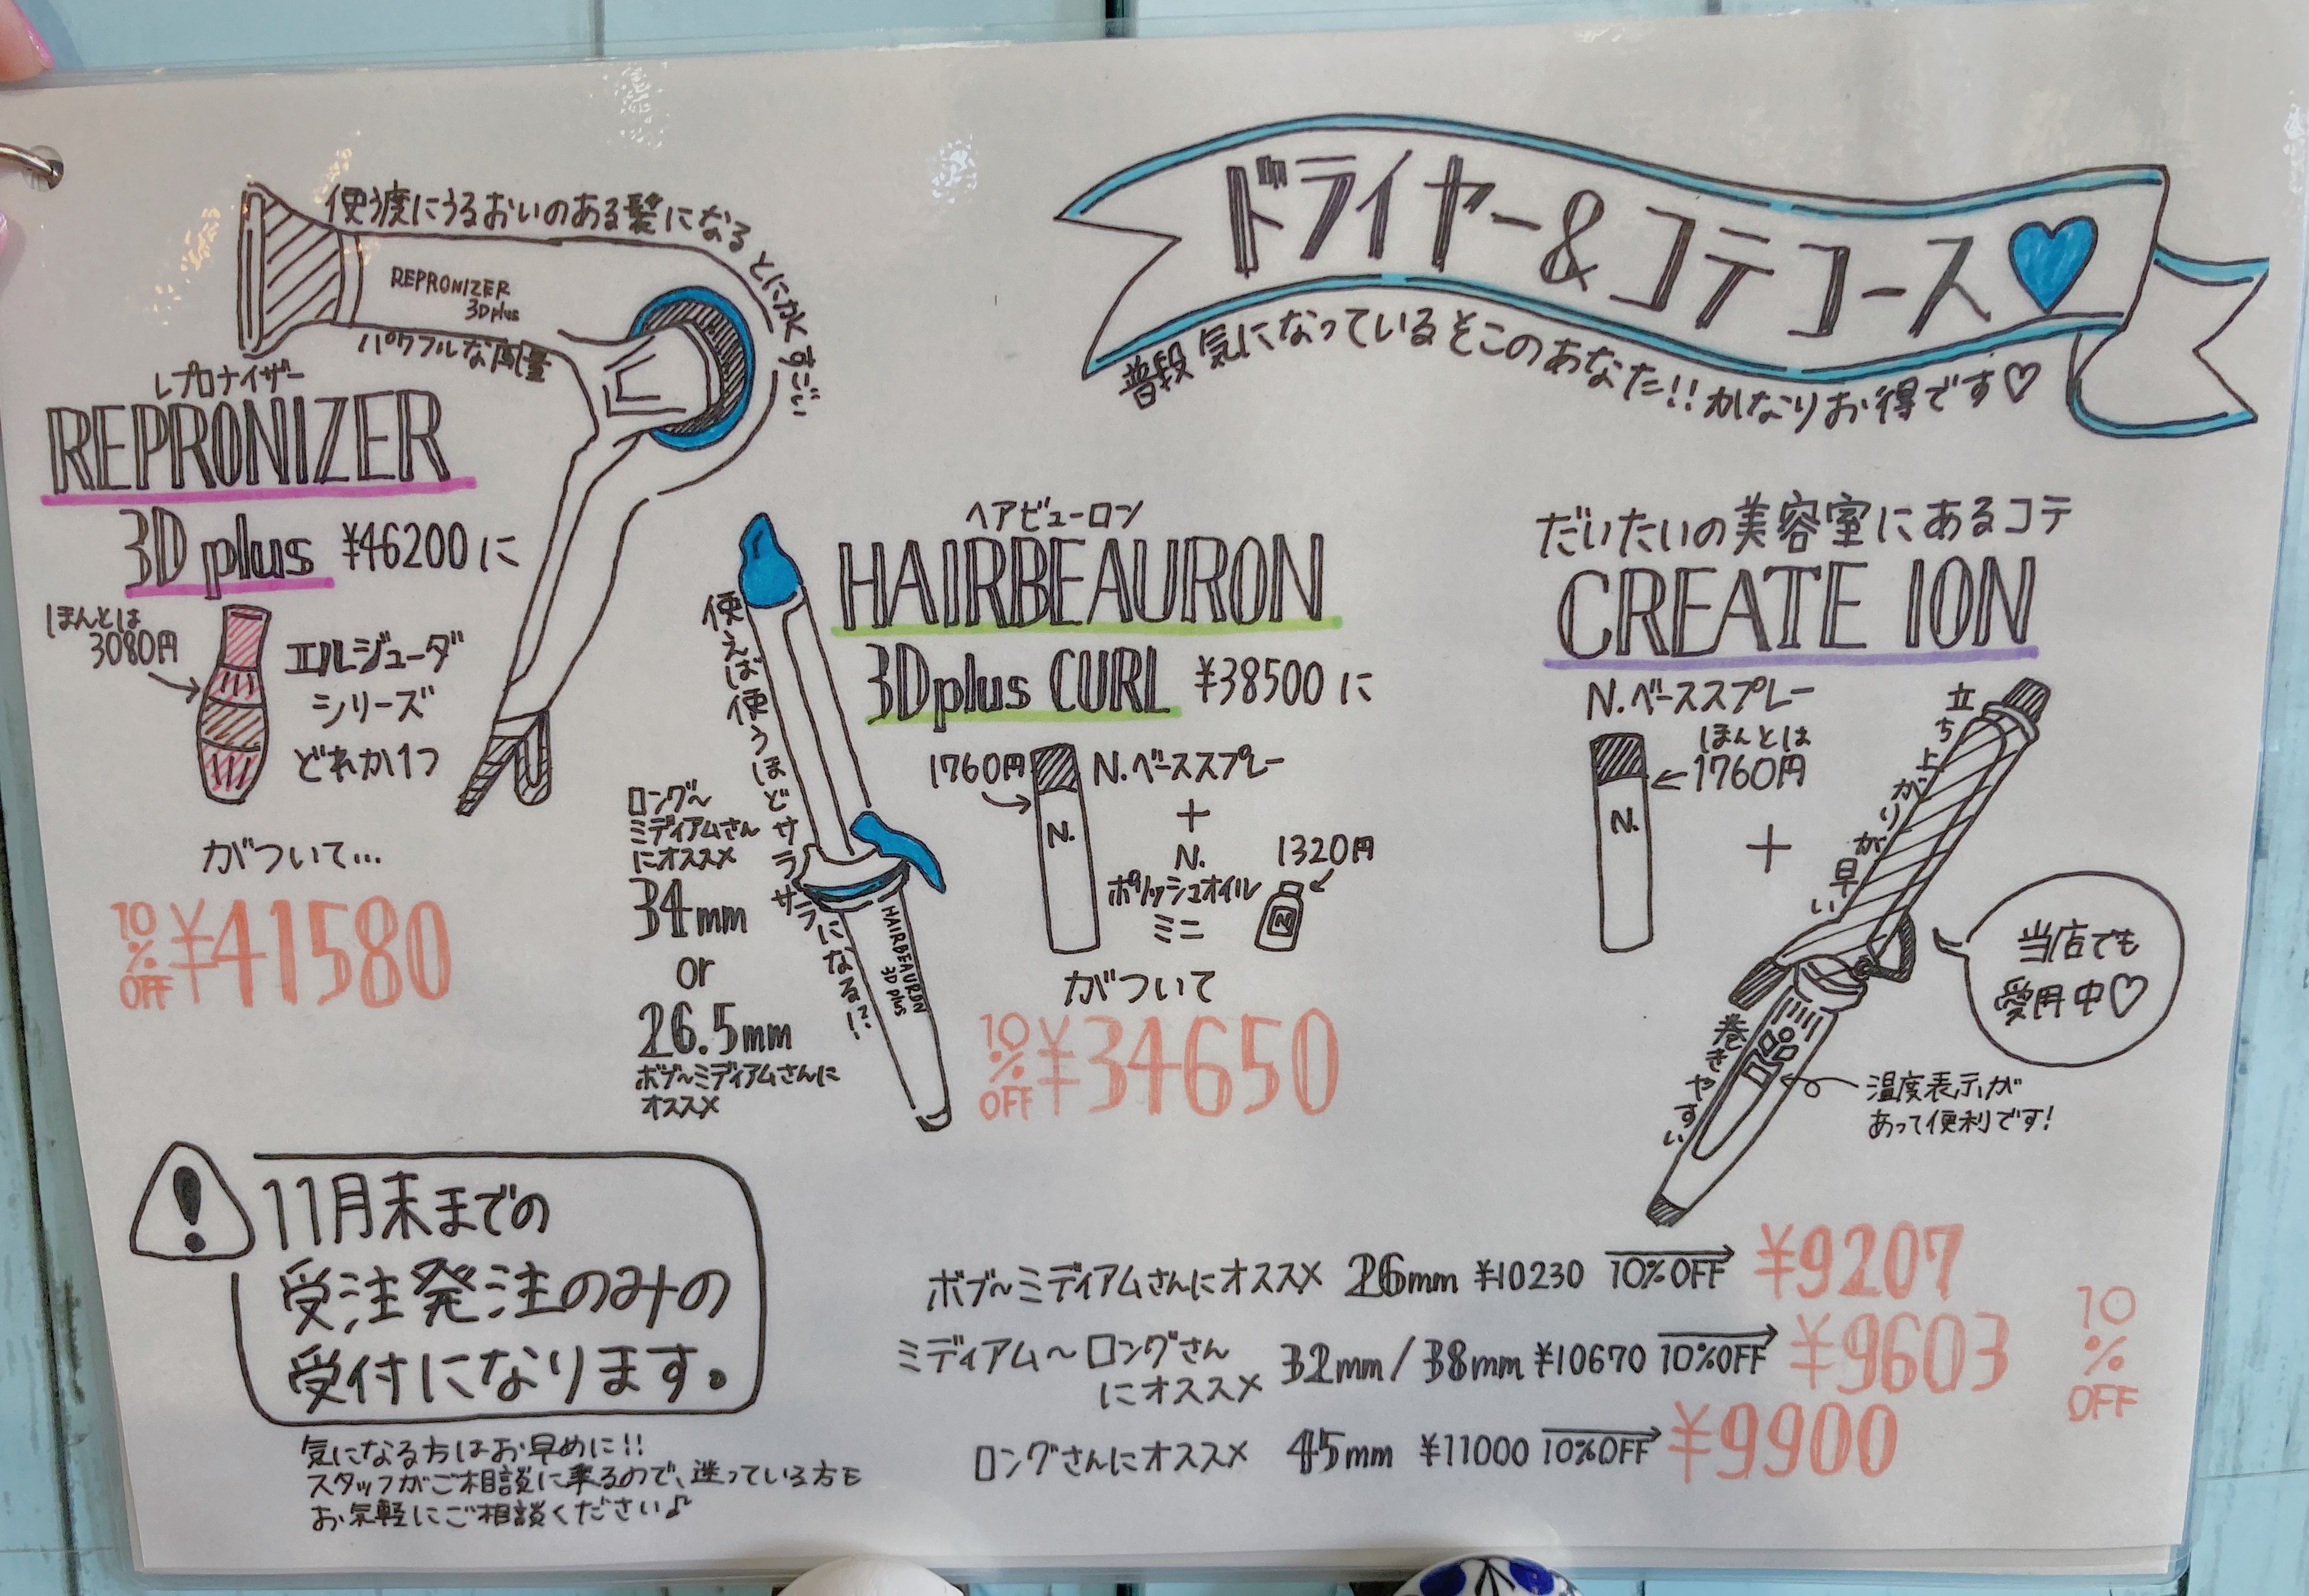 ドライヤー&コテコース
普段気になっているそこのあなた!!かなりお得です♡
使う度にうるおいのある髪になる とにかくすごい
REPRONIZER
3Dplus
パワフルな風量
レプロナイザー
REPRONIZER
3D plus ¥46200に
ほんとは
3080円
エルジューダ
シリーズ
どれか1つ
がついて...
10%OFF ¥41580
ヘアビューロン
HAIRBEAURON
3Dplus CURL ¥38500に
使えば使うほどサラサラになる!!
HAIRBEAURON
3D plus
ロング〜
ミディアムさん
にオススメ
34mm
or
26.5mm
ボブ〜ミディアムさんに
オススメ
1760円
N.
N.ベーススプレー
+
N.
ポリッシュオイル
ミニ
1320円
N
がついて
10%OFF ¥34650
だいたいの美容室にあるコテ
CREATE ION
N.ベーススプレー
ほんとは
←1760円
N.
+
立ち上がりが早い
巻きやすい
当店でも
愛用中♡
温度表示が
あって便利です!
ボブ〜ミディアムさんにオススメ 26mm ¥10230 10%OFF ¥9207
ミディアム〜ロングさん
にオススメ
32mm/38mm ¥10670 10%OFF ¥9603
ロングさんにオススメ 45mm ¥11000 10%OFF ¥9900
10
%
OFF
!
11月末までの
受注発注のみの
受付になります。
気になる方はお早めに!!
スタッフがご相談に乗るので、迷っている方も
お気軽にご相談ください♪